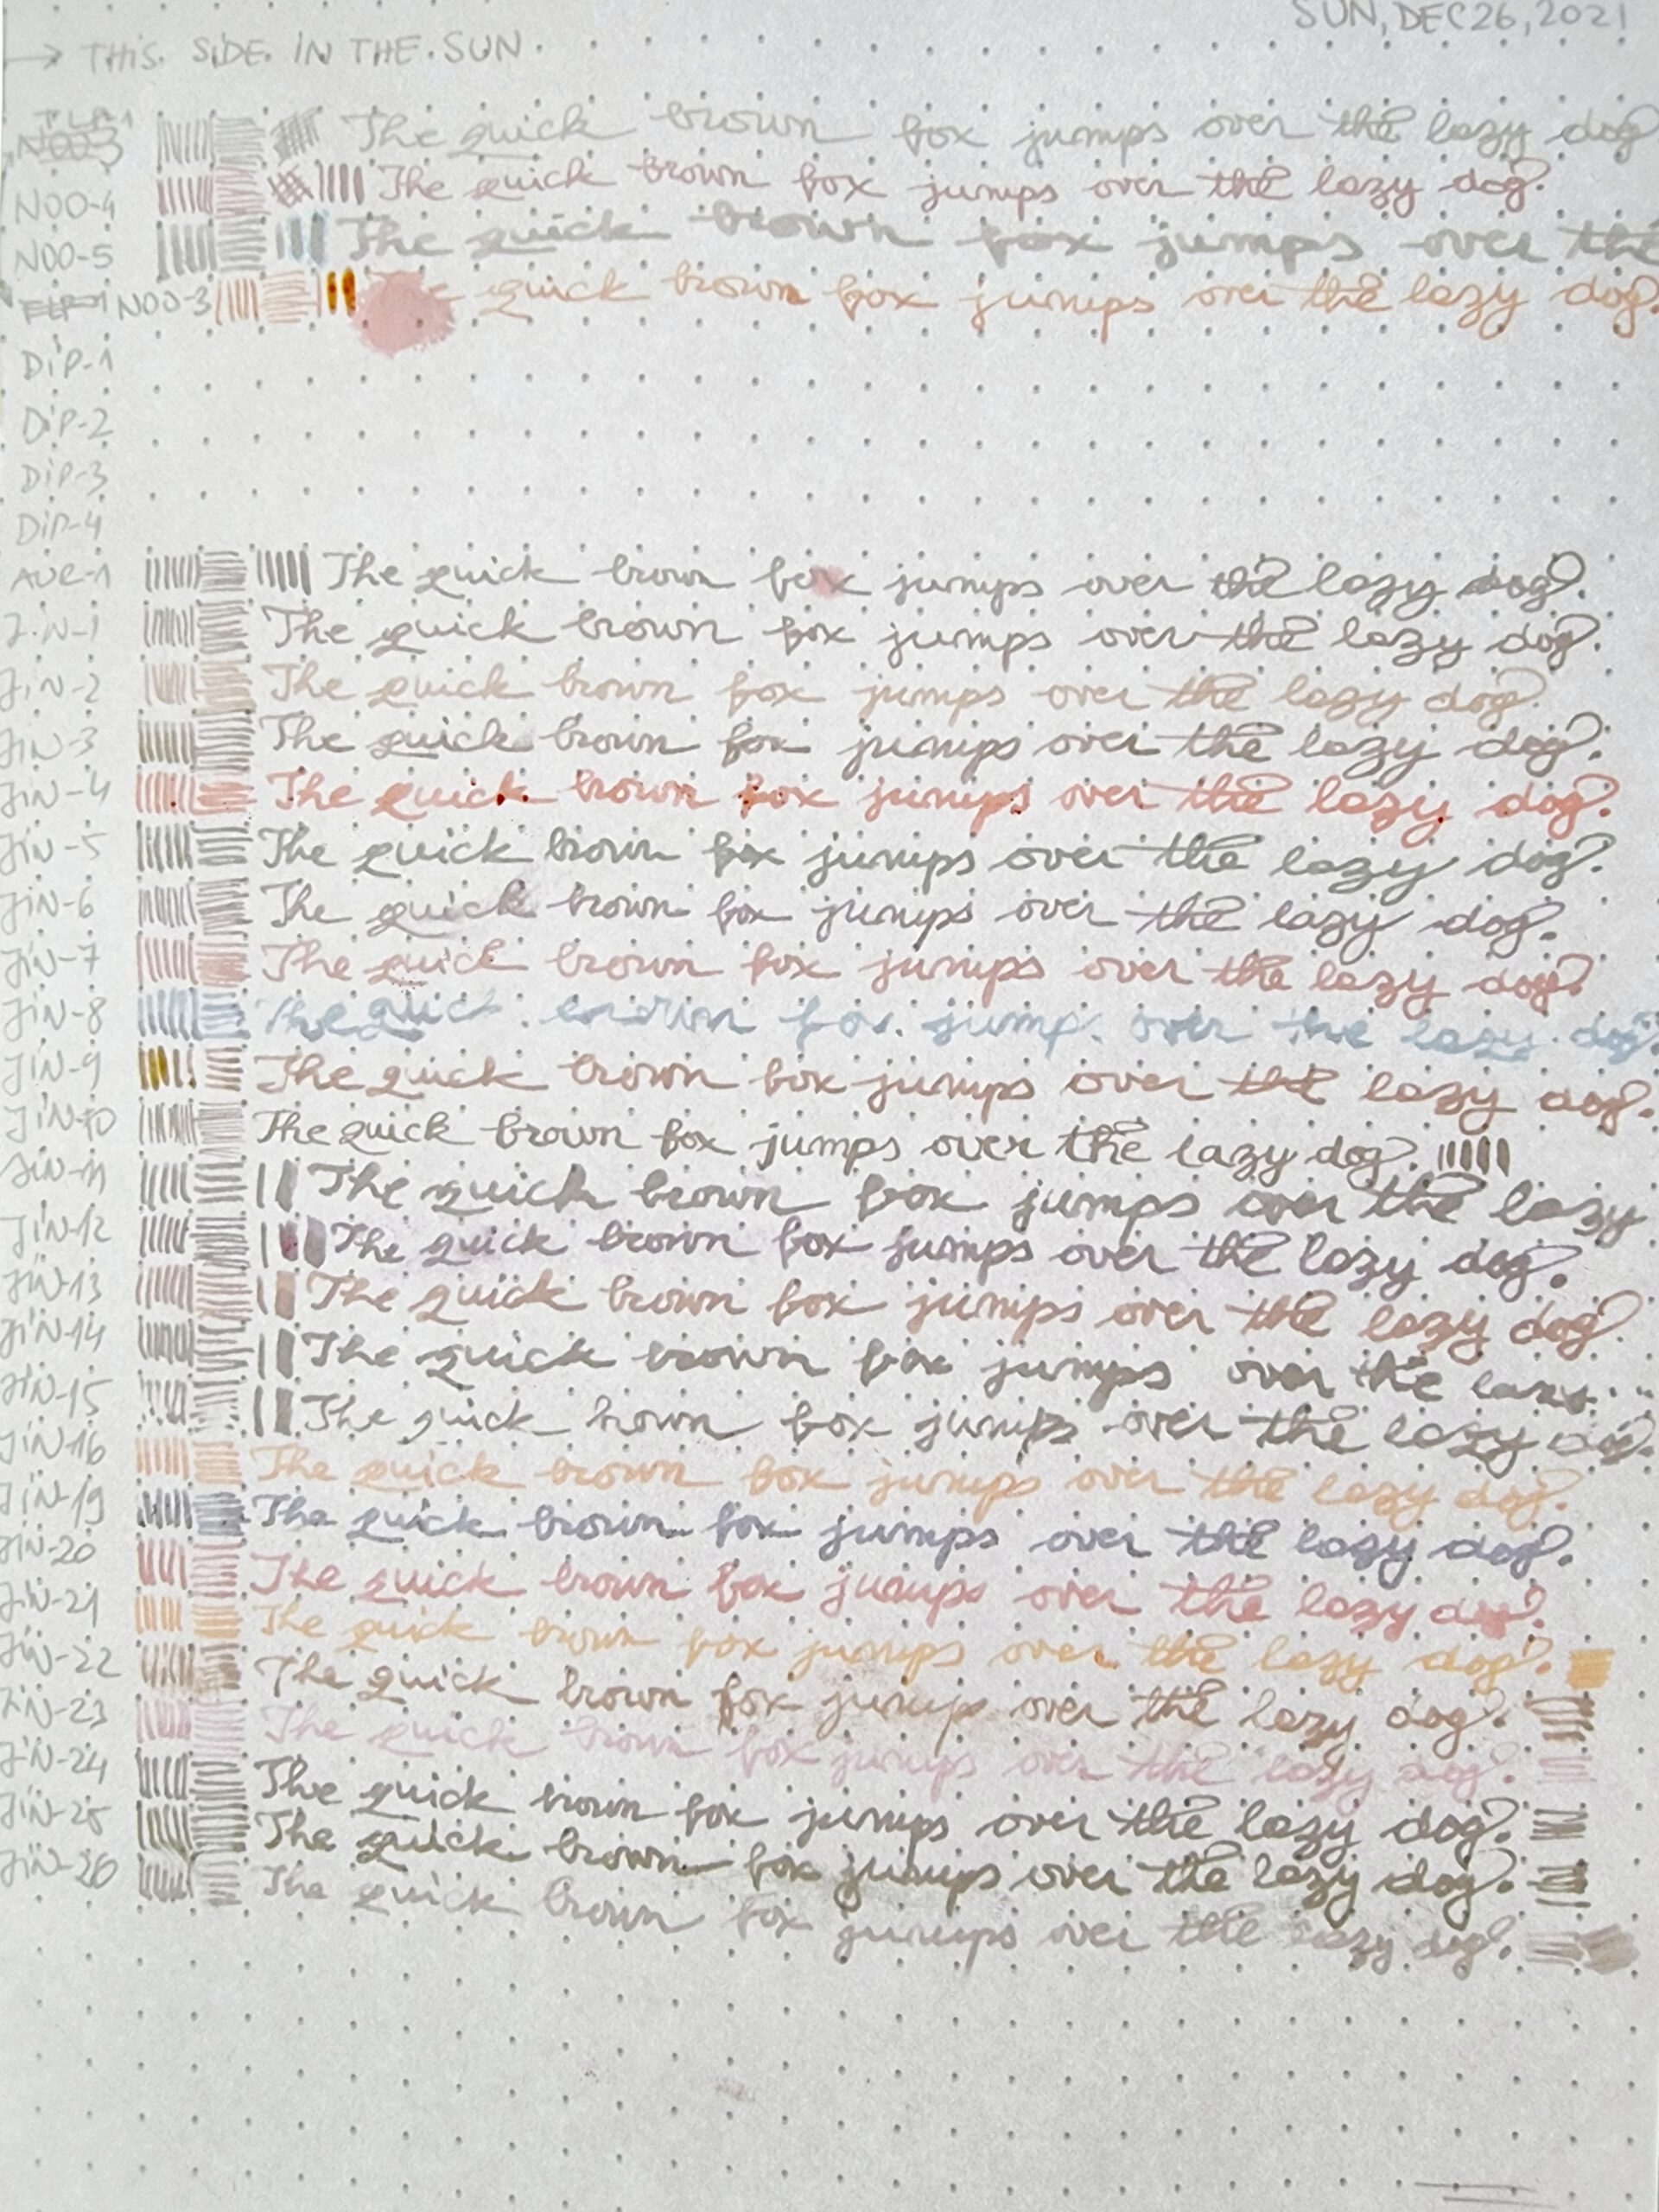 SUN, DEC 26, 2021
→ THIS SIDE IN THE SUN
TLP-1
N00-3 The quick brown fox jumps over the lazy dog
N00-4 The quick brown fox jumps over the lazy dog.
N00-5 The quick brown fox jumps over the
N00-3 quick brown fox jumps over the lazy dog.
DIP-1
DIP-2
DIP-3
DIP-4
AUR-1 The quick brown fox jumps over the lazy dog.
JIN-1 The quick brown fox jumps over the lazy dog.
JIN-2 The quick brown fox jumps over the lazy dog.
JIN-3 The quick brown fox jumps over the lazy dog.
JIN-4 The quick brown fox jumps over the lazy dog.
JIN-5 The quick brown fox jumps over the lazy dog.
JIN-6 The quick brown fox jumps over the lazy dog.
JIN-7 The quick brown fox jumps over the lazy dog.
JIN-8 The quick brown fox jump over the lazy dog.
JIN-9 The quick brown fox jumps over the lazy dog.
JIN-10 The quick brown fox jumps over the lazy dog.
JIN-11 The quick brown fox jumps over the lazy
JIN-12 The quick brown fox jumps over the lazy dog.
JIN-13 The quick brown fox jumps over the lazy dog.
JIN-14 The quick brown fox jumps over the lazy...
JIN-15 The quick brown fox jumps over the lazy dog.
JIN-16 The quick brown fox jumps over the lazy dog.
JIN-19 The quick brown fox jumps over the lazy dog.
JIN-20 The quick brown fox jumps over the lazy dog.
JIN-21 The quick brown fox jumps over the lazy dog.
JIN-22 The quick brown fox jumps over the lazy dog.
JIN-23 The quick brown fox jumps over the lazy dog.
JIN-24 The quick brown fox jumps over the lazy dog.
JIN-25 The quick brown fox jumps over the lazy dog.
JIN-26 The quick brown fox jumps over the lazy dog.